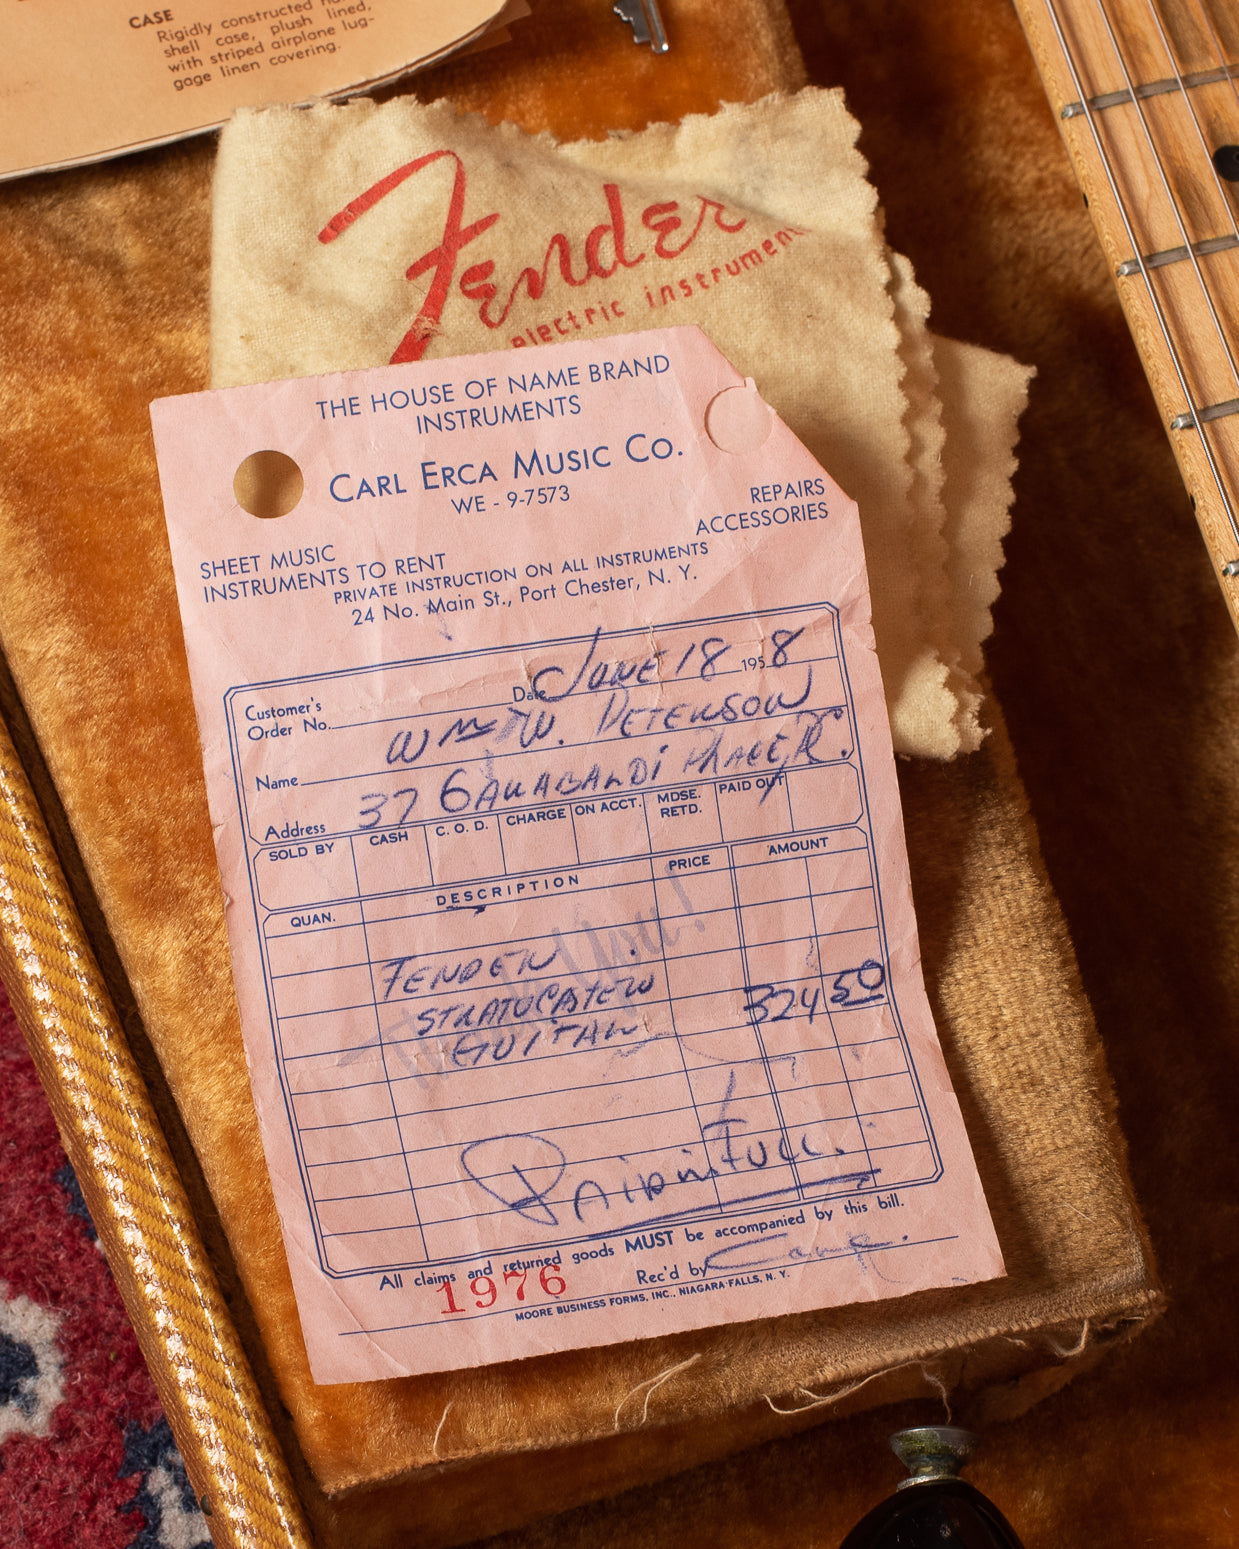 CASE
Rigidly constructed
shell case, plush lined,
with striped airplane lug-
gage linen covering.
Fender
electric instrument
THE HOUSE OF NAME BRAND
INSTRUMENTS
CARL ERCA MUSIC CO.
WE - 9-7573
REPAIRS
ACCESSORIES
SHEET MUSIC
INSTRUMENTS TO RENT
PRIVATE INSTRUCTION ON ALL INSTRUMENTS
24 No. Main St., Port Chester, N. Y.
Customer's
Order No. Date JUNE 18 1958
Name Wm W. PETERSON
Address 37 GARABALDI PLACE, P.C.
SOLD BY CASH C. O. D. CHARGE ON ACCT. MDSE. RETD. PAID OUT
QUAN. DESCRIPTION PRICE AMOUNT
Thank You!
FENDER
STRATOCATER 324 50
GUITAR
PAID IN FULL.
All claims and returned goods MUST be accompanied by this bill.
1976 Rec'd by
MOORE BUSINESS FORMS, INC., NIAGARA FALLS, N. Y.